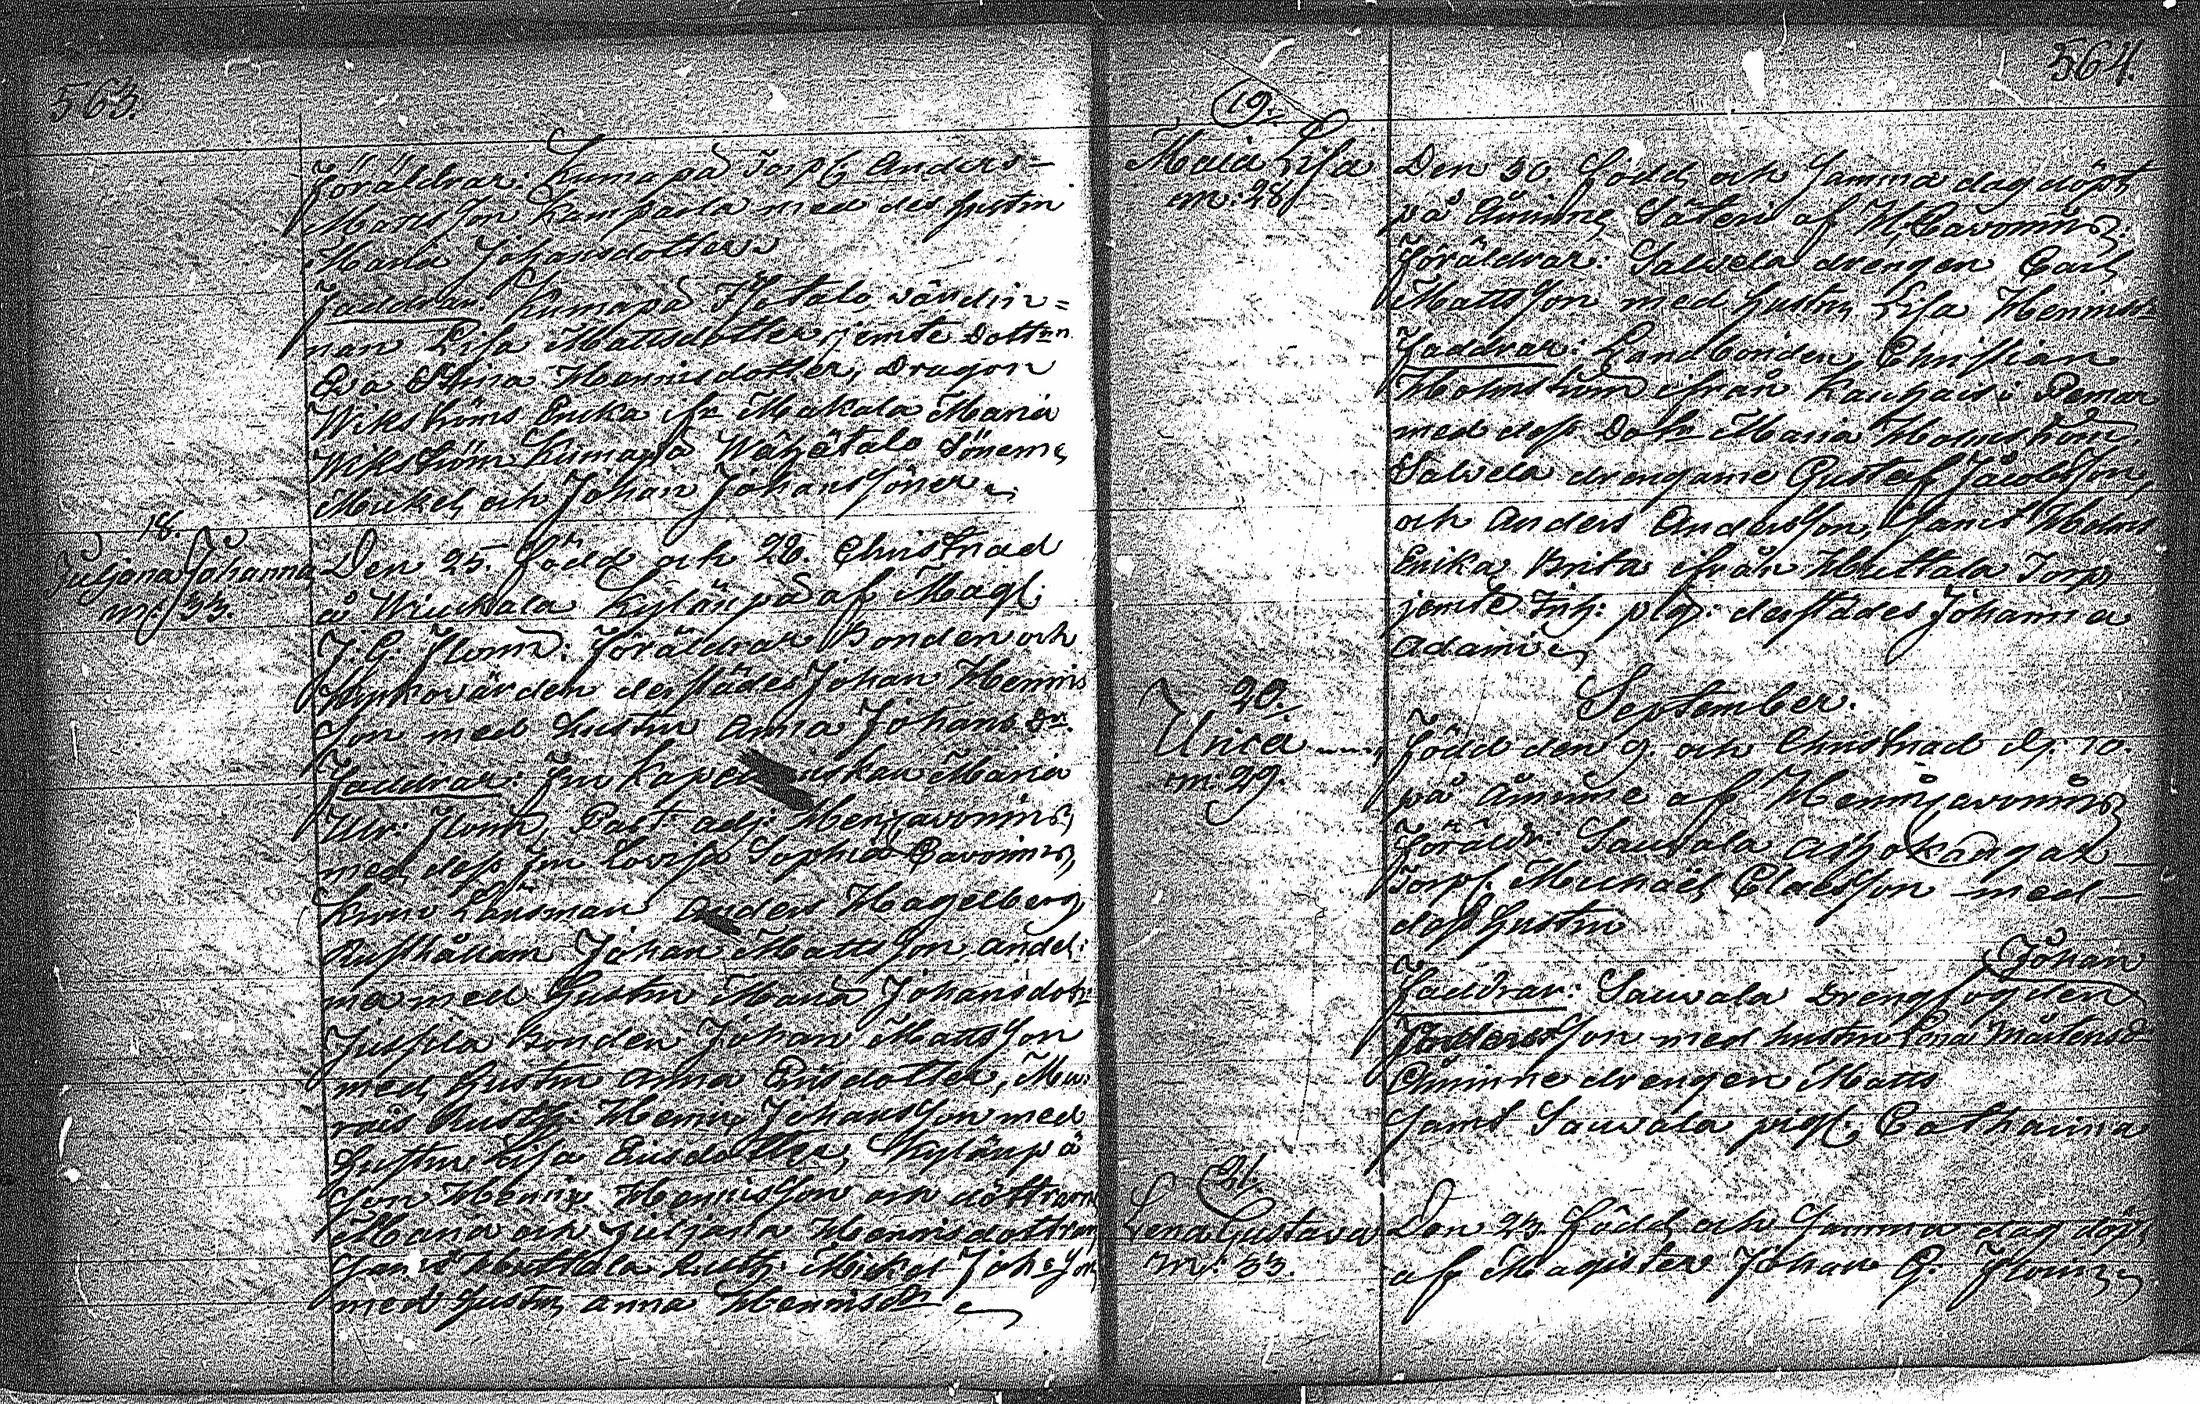 563.
Föräldrar: Kumapå Torp. Anders
Mattsson Kampada med des hustru
Maria Johansdotter
Faddrar Kumapå Ylötalo värdin=
nan Lisa Mattsdotter, jemte Dottrn
Eva Stina Henrisdotter, Dragon
Wikströms Enka fr. Mukala Maria
Wikström Kumapå Wähätalo Sönerne
Mickel och Johan Johanssöner
18.
Juljana Johanna
m. 33.
Den 25. född och 26. Christnad
å Kylänpä af Mag:
J. G. Florin. Föräldrar Bonden och
Kyrkovärden derstädes Johan Henrics
son med hustru Anna Johans Dr.
Faddrar: Fru Maria
Ulr: Florin, Past. adj: Henr. Cavonius,
med dess Fru Lovisa Sophia Cavonius,
Krono Länsman Anders Hagelberg,
Rusthållarn Johan Mattsson Andel:
ma med hustru Maria Johansdotr
Juspla Bonden Johan Mattsson
med hustru Anna Erisdotter, Mu:
rais Rusth: Henric Johansson med
hustru Lisa Erisdotter, Kylänpä
Son Henric Henrisson och döttrarne
Maria och Juljana Henrisdöttrar,
samt Huttala Rusth: Mickel Johsson
med hustru Anna Henrisdr
564.
19.
Maria Lisa
m. 28
Den 30. född och samma dag döpt
på Åminne Säteri af H. Cavonius.
Föräldrar: Salvela drengen Carl
Mattsson med hustru Lisa Henrisdr
Faddrar: Landbonden Christian
Holmström ifrån i Pemar
med dess Dotr Maria Holmström,
Salvela drengarne Gustaf Jacobsson,
och Anders Andersson, samt
Erika Brita ifrån Huttala Torp
jemte Inh: pig: derstädes Johanna
Adami
September.
20.
Ulrica
m. 29.
Född den 9. och Christnad d. 10.
på Åminne af Henr. Cavonius
Föräldr: Sauvala
Torp. Michaël Claesson med
dess hustru
Johan
Faddrar: Sauvala Drengfogden
Andersson med hustru Lena Mårtensd
Åminne drengen Matts
samt Sauvala pig. Catharina
21.
Lena Gustava
m. 33.
Den 23. född och samma dag döpt
af Magister Johan G. Florin